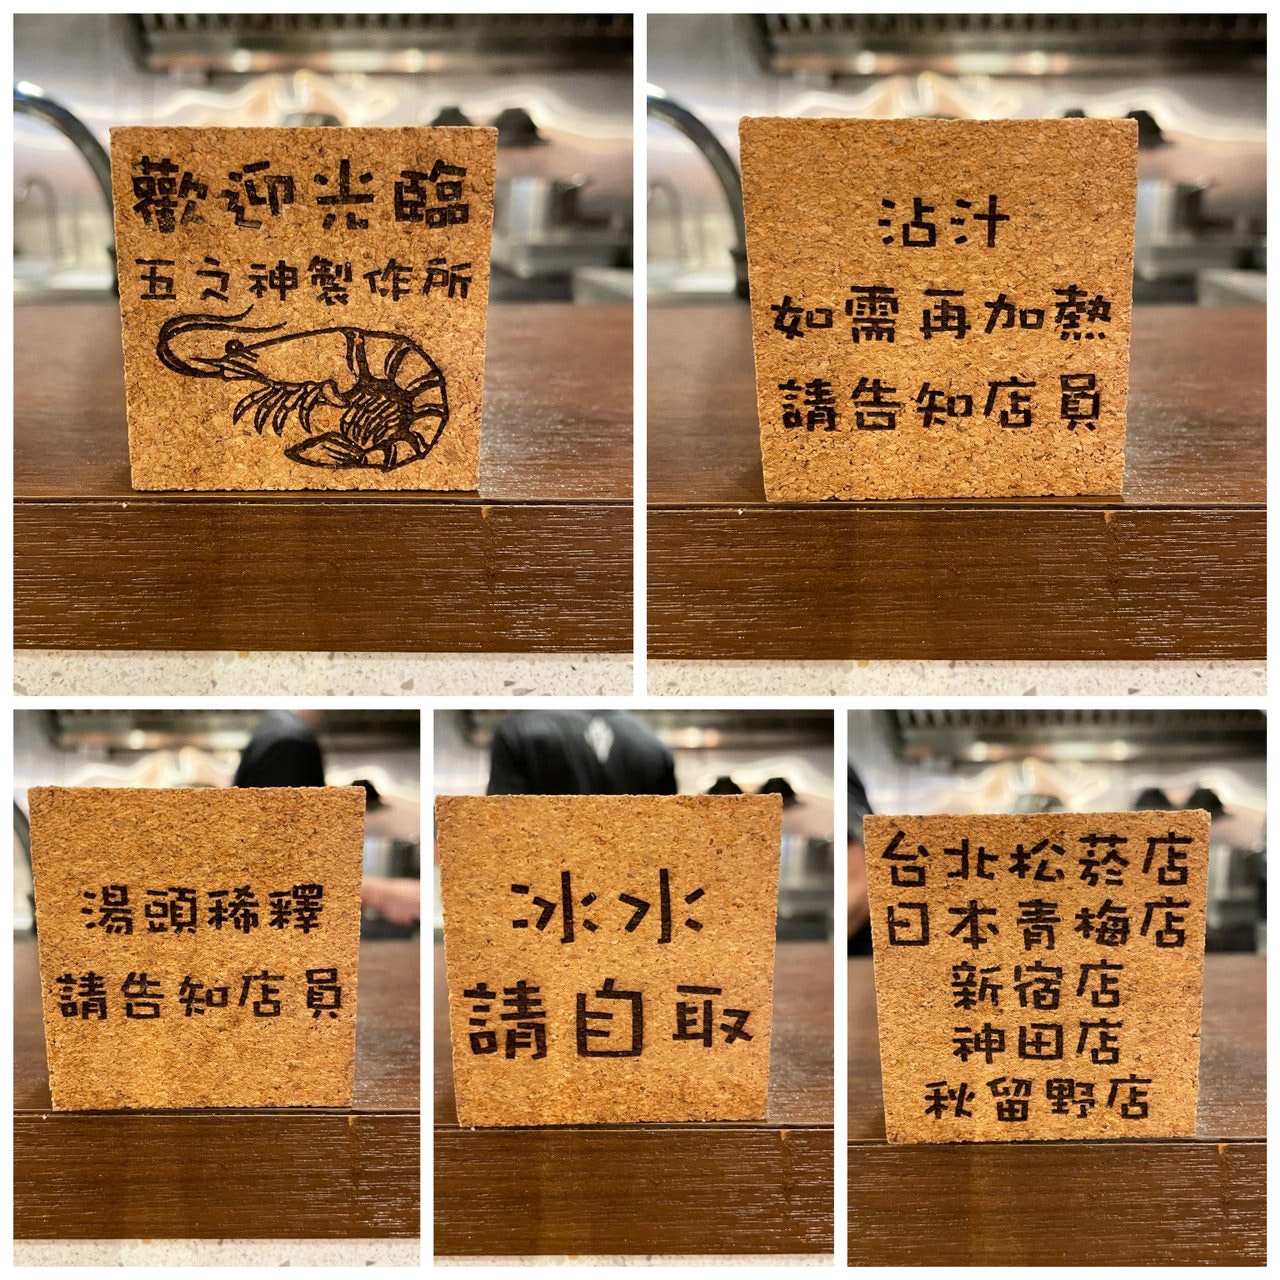 歡迎光臨
五之神製作所
沾汁
如需再加熱
請告知店員
湯頭稀釋
請告知店員
冰水
請自取
台北松菸店
日本青梅店
新宿店
神田店
秋留野店